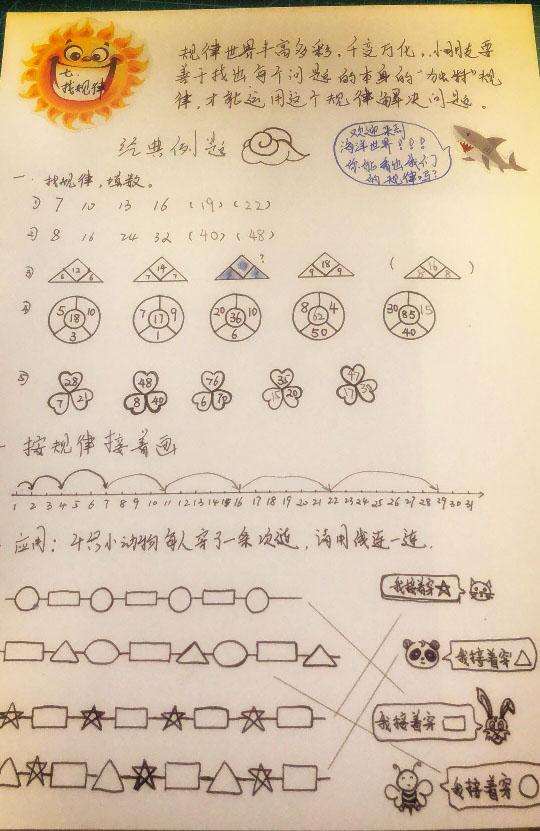 七.
找规律
规律世界丰富多彩，千变万化，小朋友要
善于找出每个问题的本身的“独特”规
律，才能运用这个规律解决问题。
经典例题
欢迎来到
海洋世界！！！
你能看出我们
的规律吗？
一.找规律，填数。
1) 7 10 13 16 (19) (22)
2) 8 16 24 32 (40) (48)
3)
12 6 6
14 7 7
?
18 9 9
( 16 8 8 )
4)
5 10 18 3
7 9 17 1
20 10 36 6
8 4 62 50
30 15 85 40
5)
28 7 21
48 8 40
76 6 70
35 15 20
47 17 30
按规律接着画
1 2 3 4 5 6 7 8 9 10 11 12 13 14 15 16 17 18 19 20 21 22 23 24 25 26 27 28 29 30 31
应用：4只小动物每人穿了一条项链，请用线连一连.
我接着穿
我接着穿
我接着穿
我接着穿